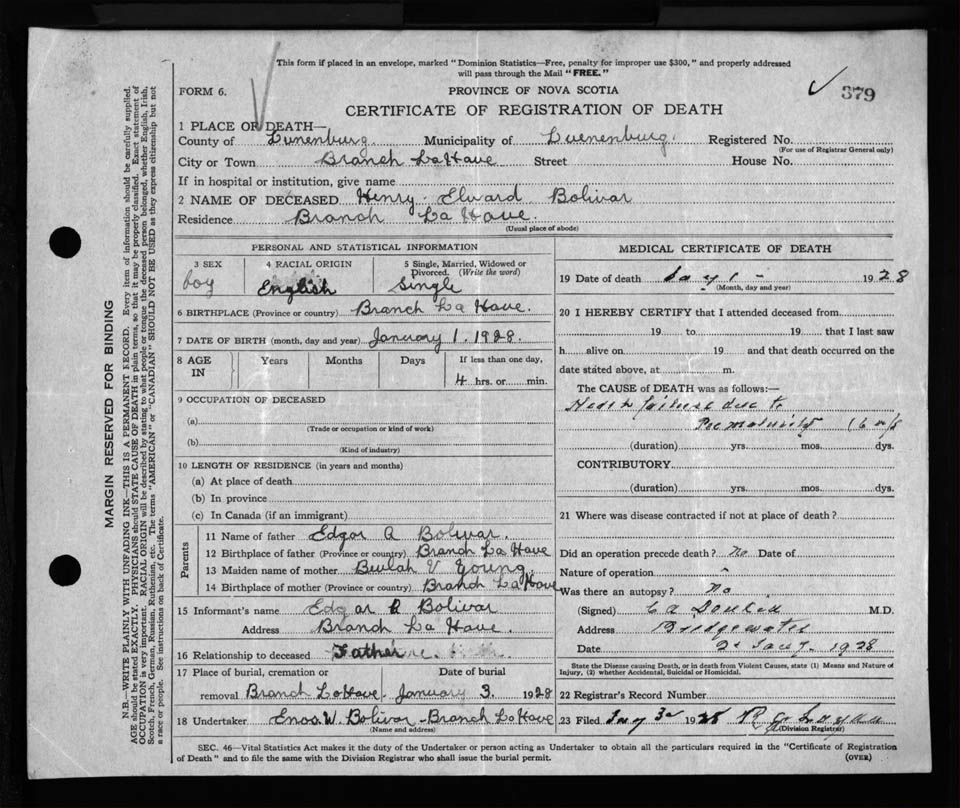 This form if placed in an envelope, marked "Dominion Statistics—Free, penalty for improper use $300," and properly addressed
will pass through the Mail "FREE."
FORM 6.
PROVINCE OF NOVA SCOTIA
379
CERTIFICATE OF REGISTRATION OF DEATH
1 PLACE OF DEATH—
County of Lunenburg Municipality of Luenenburg. Registered No.
(For use of Registrar General only)
City or Town Branch LaHave Street House No.
If in hospital or institution, give name
2 NAME OF DECEASED Henry Elward Bolivar
Residence Branch La Have.
(Usual place of abode)
PERSONAL AND STATISTICAL INFORMATION
3 SEX 4 RACIAL ORIGIN 5 Single, Married, Widowed or
Divorced. (Write the word)
boy English Single
6 BIRTHPLACE (Province or country) Branch La Have.
7 DATE OF BIRTH (month, day and year) January 1. 1928.
8 AGE IN Years Months Days If less than one day,
4 hrs. or min.
9 OCCUPATION OF DECEASED
(a)
(Trade or occupation or kind of work)
(b)
(Kind of industry)
10 LENGTH OF RESIDENCE (in years and months)
(a) At place of death
(b) In province
(c) In Canada (if an immigrant)
Parents
11 Name of father Edgar A Bolivar.
12 Birthplace of father (Province or country) Branch La Have
13 Maiden name of mother Beulah V Young.
14 Birthplace of mother (Province or country) Branch La Have
15 Informant's name Edgar A Bolivar
Address Branch La Have.
16 Relationship to deceased Father
17 Place of burial, cremation or Date of burial
removal Branch LaHave January 3. 1928
18 Undertaker Enos. W. Bolivar - Branch La Have
(Name and address)
MEDICAL CERTIFICATE OF DEATH
19 Date of death 1 - 1928
(Month, day and year)
20 I HEREBY CERTIFY that I attended deceased from
19 to 19 that I last saw
h alive on 19 and that death occurred on the
date stated above, at m.
The CAUSE of DEATH was as follows:—
Heart failure due to
Prematurity (6
(duration) yrs. mos. dys.
CONTRIBUTORY.
(duration) yrs. mos. dys.
21 Where was disease contracted if not at place of death?
Did an operation precede death? no Date of
Nature of operation
Was there an autopsy? no
(Signed) M.D.
Address Bridgewater
Date 2 Jany. 1928
State the Disease causing Death, or in death from Violent Causes, state (1) Means and Nature of
Injury, (2) whether Accidental, Suicidal or Homicidal.
22 Registrar's Record Number
23 Filed Jany 3 1928
(Division Registrar)
SEC. 46—Vital Statistics Act makes it the duty of the Undertaker or person acting as Undertaker to obtain all the particulars required in the "Certificate of Registration
of Death" and to file the same with the Division Registrar who shall issue the burial permit.
(OVER)
MARGIN RESERVED FOR BINDING
N.B.—WRITE PLAINLY WITH UNFADING INK—THIS IS A PERMANENT RECORD. Every item of information should be carefully supplied.
AGE should be stated EXACTLY. PHYSICIANS should STATE CAUSE OF DEATH in plain terms, so that it may be properly classified. Exact statement of
OCCUPATION is very important. RACIAL ORIGIN will be described by stating to what people or tongue the deceased person belonged, whether English, Irish,
Scotch, French, German, Russian, Ruthenian, etc. The terms "AMERICAN" or "CANADIAN" SHOULD NOT BE USED as they express citizenship but not
a race or people. See instructions on back of Certificate.